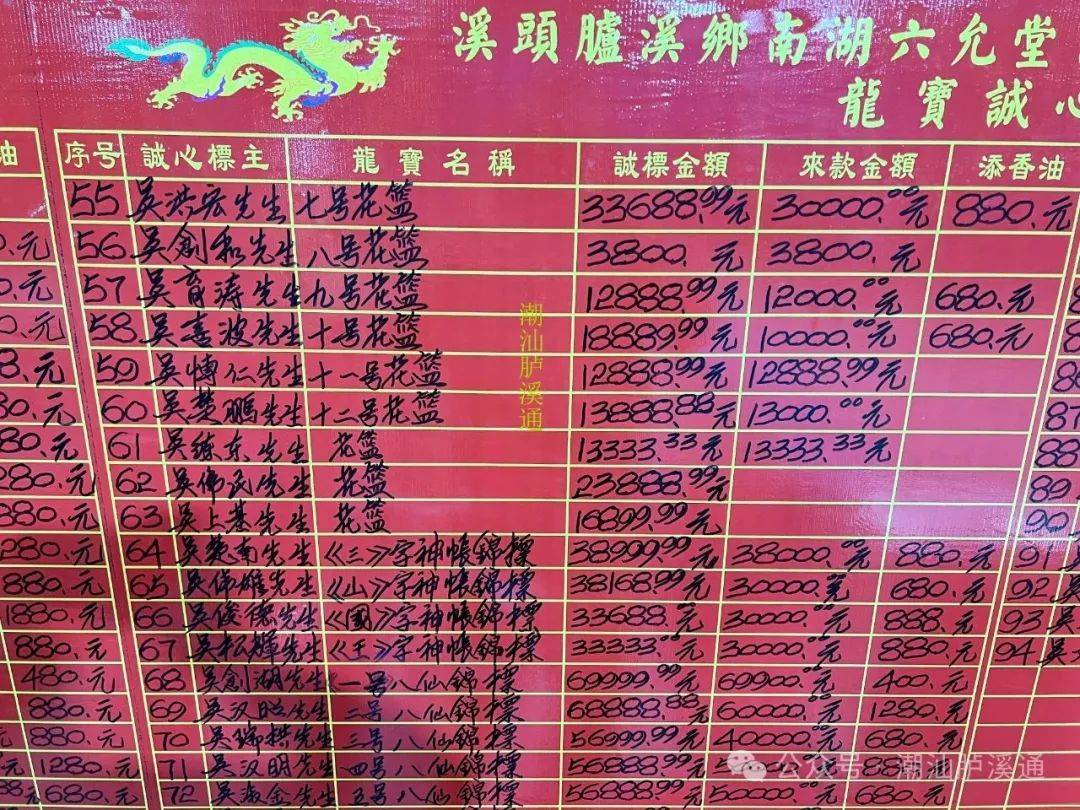 溪頭臚溪鄉南湖六允堂
龍寶誠心
油 序号 誠心標主 龍寶名稱 誠標金額 來款金額 添香油
55 吳洪宏先生 七号花籃 33688.99元 30000.00元 880.元
56 吳創和先生 八号花籃 3800.元 3800.元
57 吳育涛先生 九号花籃 12888.99元 12000.00元 680.元
58 吳喜波先生 十号花籃 18889.99元 10000.00元 680.元
59 吳博仁先生 十一号花籃 12888.99元 12888.99元
60 吳楚鵬先生 十二号花籃 13888.88元 13000.00元
880.元 61 吳练东先生 花籃 13333.33元 13333.33元
280.元 62 吳佛民先生 花籃 23888.99元 89
880.元 63 吳上基先生 花籃 16899.99元 90
1280.元 64 吳英南先生 《三》字神帳錦標 38999.99元 38000.00元 880.元 91
880.元 65 吳佛雄先生 《山》字神帳錦標 38168.99元 30000.元 680.元 92
1880.元 66 吳俊德先生 《國》字神帳錦標 33688.元 30000.元 888.元 93 吳
880.元 67 吳松輝先生 《王》字神帳錦標 33333.元 30000.元 880.元 94 吳
480.元 68 吳創湖先生 一号八仙錦標 69999.99元 69900.元 400.元
880.元 69 吳汉昭先生 二号八仙錦標 68888.88元 60000.元 1280.元
880.元 70 吳瑞拱先生 三号八仙錦標 56999.99元 40000.元 680.元
1280.元 71 吳汉明先生 四号八仙錦標 56888.99元
680.元 72 吳海金先生 五号八仙錦標 56888.99元 50000.元 680.元
潮汕胪溪通
公众号 潮汕胪溪通